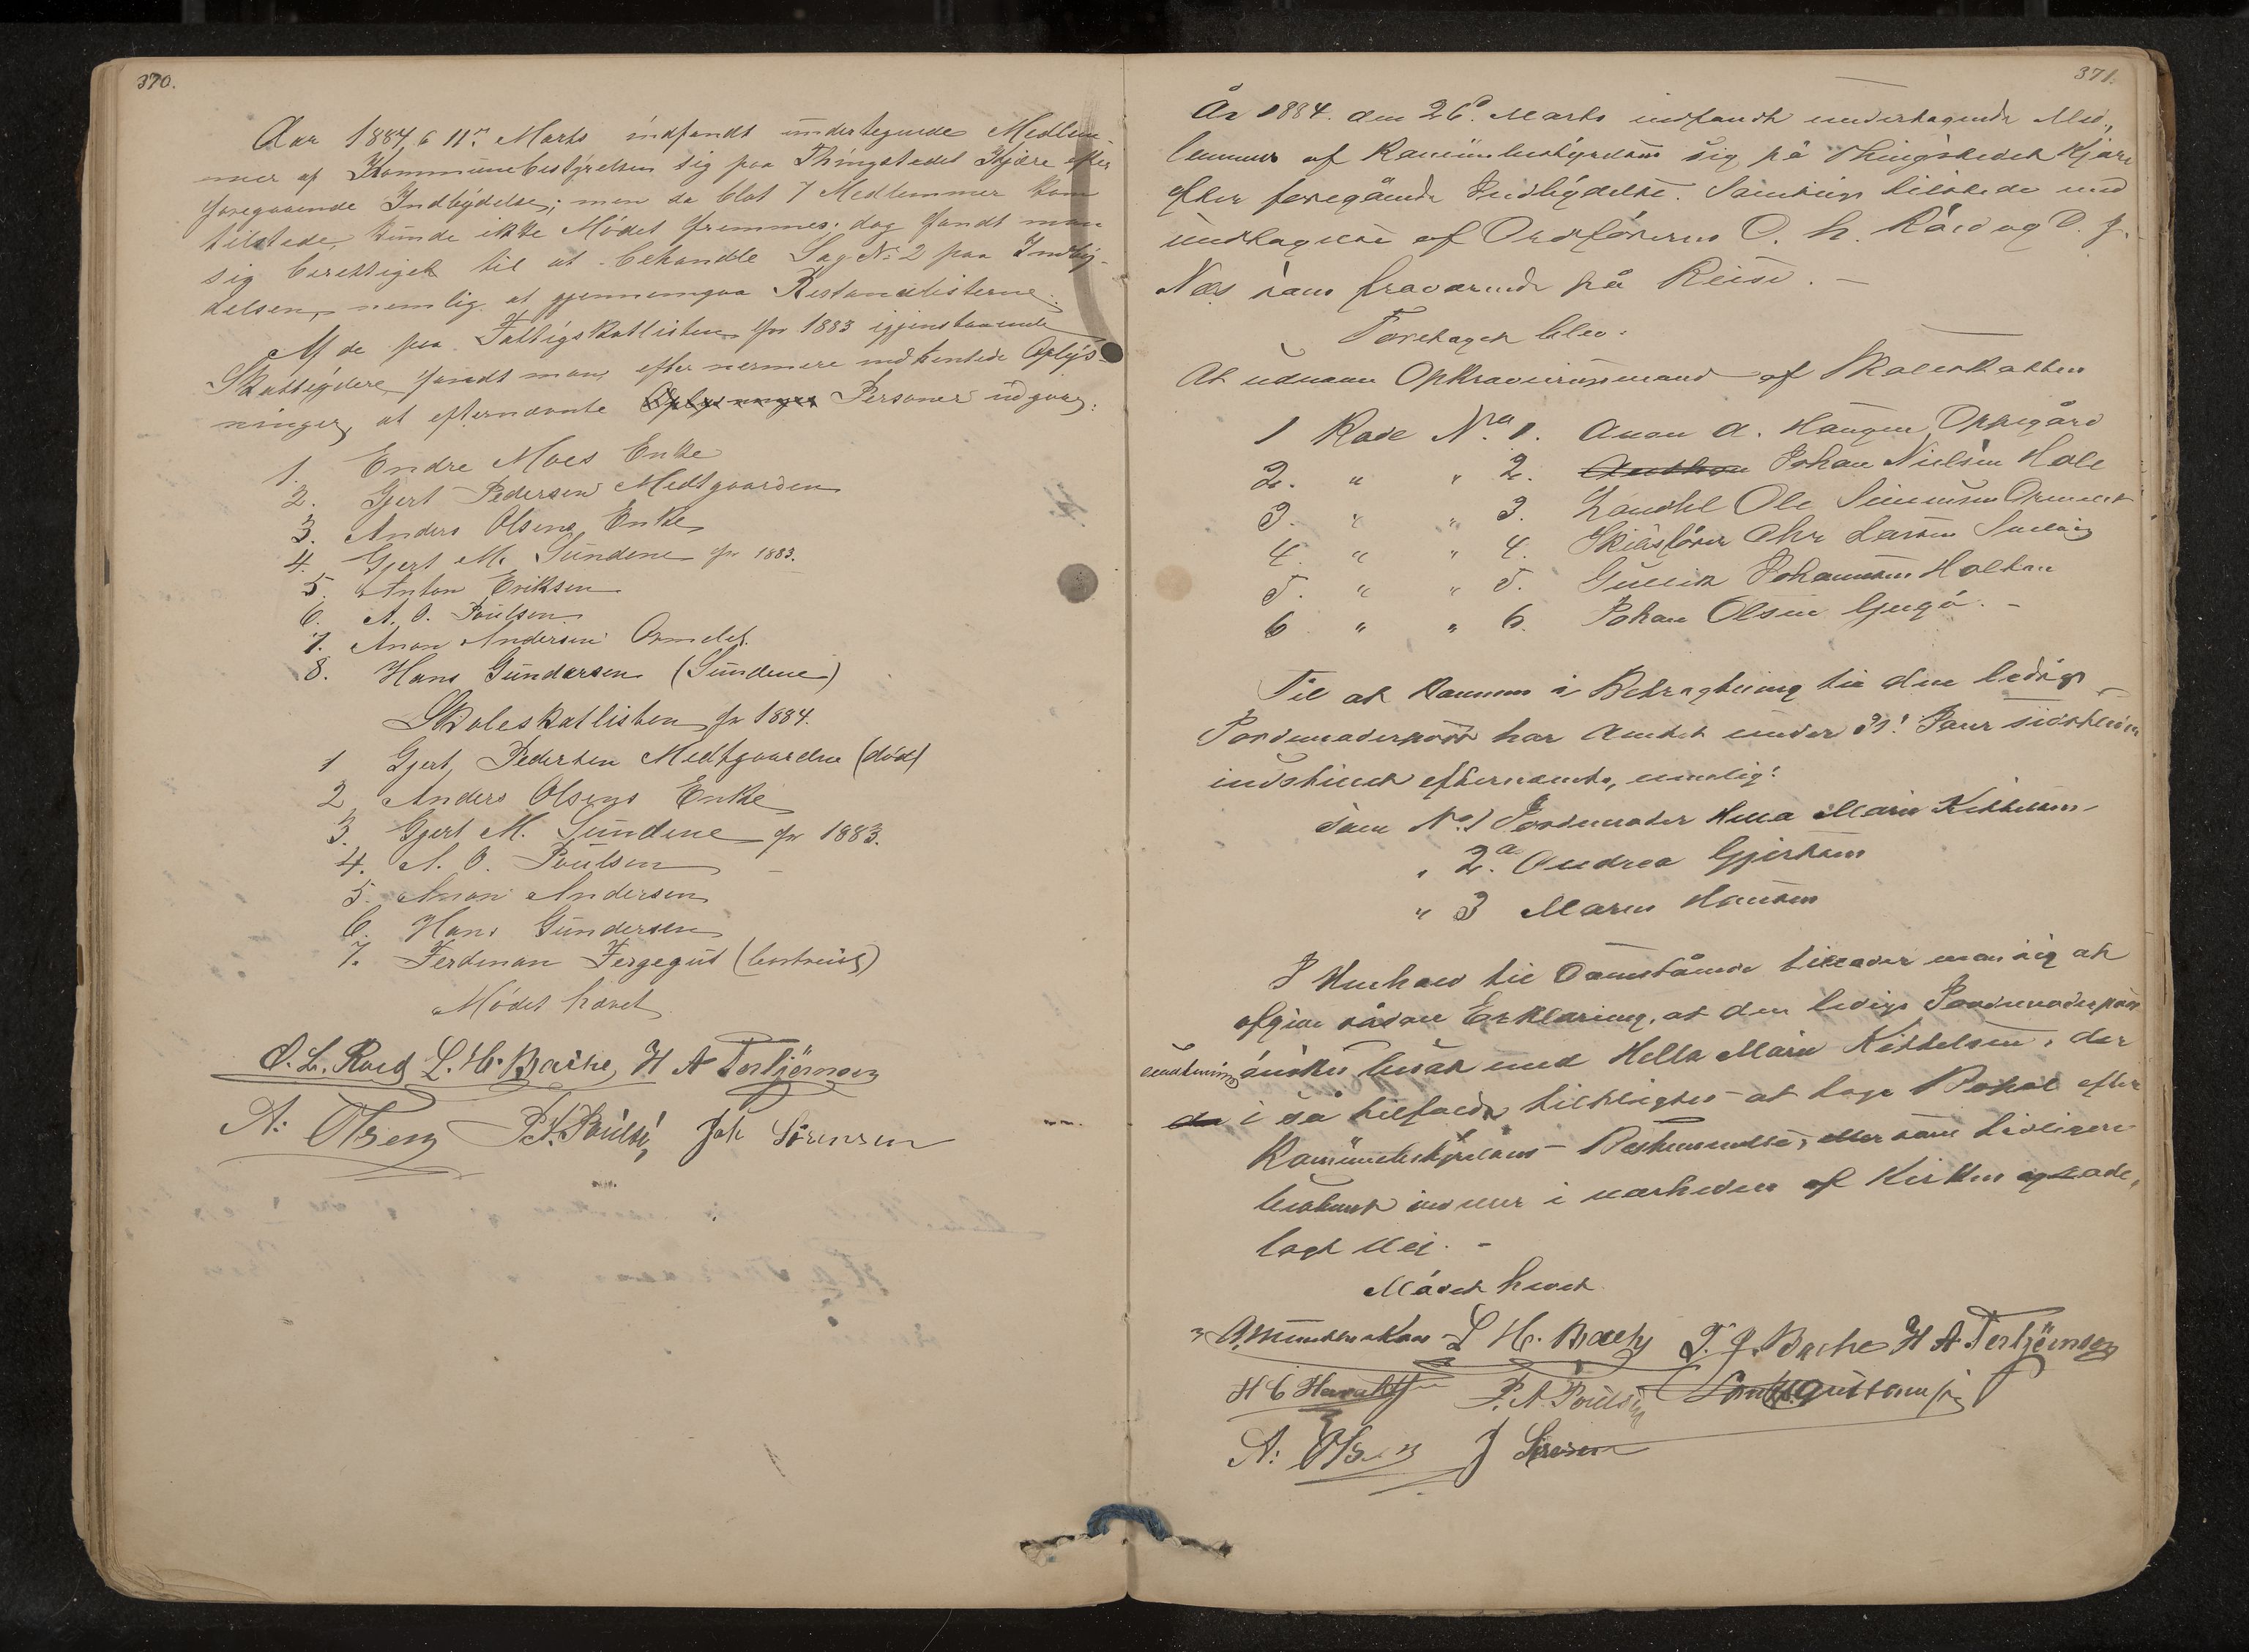 370.
Aar 1884, 6 11te Marts indfandt undertegnede Medlem-
mer af Kommunebestyrelsen sig paa Thingstedet Kjære efter
foregaaende Indbydelse; men da blot 7 Medlemmer kom
tilstede, kunde ikke Mødet fremmes; dog fandt man
sig berettiget til at behandle Sag No 2 paa Indby-
delsen, nemlig at gjennemgaa Restancelisterne.
Af de paa Fattigskatlisten for 1883 igjenstaaende
Skatteydere fandt man, efter nermere indhentede Oplys-
ninger, at efternævnte Personer udgaar:
1. Endre Moes Enke
2. Gjert Pedersen Medtgaarden
3. Anders Olsens Enke
4. Gjert M. Sundene for 1883.
5. Anton Eriksen
6. A. O. Poulsen
7. Anon Andersen Ormelet
8. Hans Gundersen (Sundene)
Skoleskatlisten for 1884.
1 Gjert Pedersen Medtgaarden (død)
2 Anders Olsens Enke
3. Gjert M. Sundene for 1883.
4. A. O. Poulsen
5. Anon Andersen
6. Hans Gundersen
7. Ferdinan Fergegut (bortreist)
Mødet hævet
O. L. Røed L. H. Bache, H A Torbjørnsen
A: Olsen P. A. Poulsen Joh Sørensen
371.
År 1884. den 26d Marts indfandt undertegnede Med-
lemmer af Kommunebestyrelsen sig på Thingstedet Kjære
efter foregående Indbydelse. Samtlige tilstede med
undtagelse af Ordføreren O. L. Røed og O. J.
Næs som fraværende på Reise. —
Foretaget blev:
At udnævne Opkrævningsmænd af Skoleskatten
1 Rode No. 1. Anon A. Haugen Oppegård
2. " " 2. Johan Nielsen Hole
3. " " 3. Landhl Ole Simensen Ormelet
4. " " 4. Skibsfører Chr Larsen
5. " " 5. Gullik Johannesen Holtan
6 " " 6. Johan Olsen Gjengø. -
Til at komme i Betragtning til den ledige
Jordemoderpost har Amtet under 31. Janr sidstleden
indstillet efternævnte, nemlig:
som No. 1 Jordemoder Hella Marie Kittelsen
" 2. Andrea Gjertsen
" 3 Maren Hansen
I Henhold til Ovenstående tillader man sig at
afgive sådan Erklæring, at den ledige Jordemoderpost
ønskes besat med Hella Marie Kittelsen, der
i så tilfælde tilpligtes at tage Bopæl efter
Kommunebestyrelsens Bestemmelse, eller som tidligere
bestemt inden i nærheden af Kirken og ode-
lagt Vei. -
Mødet hevet
L H. Bache T. J. Bache H A Torbjørnsen
P. A. Poulsen
A: Olsen J Sørensen